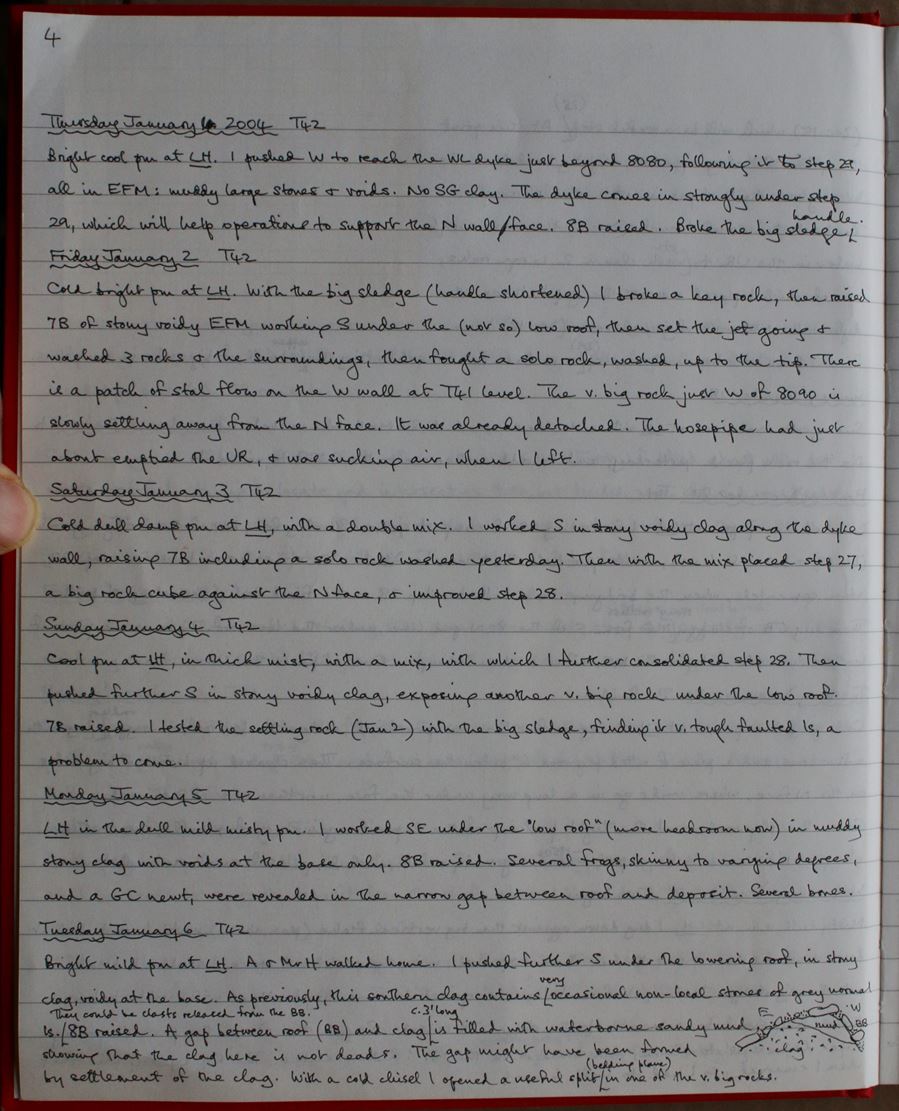 4
Thursday January 1 2004 T42
Bright cool pm at LH. I pushed W to reach the WL dyke just beyond 8080, following it to step 29,
all in EFM: muddy large stones & voids. No SG clay. The dyke comes in strongly under step
29, which will help operations to support the N wall/face. 8B raised. Broke the big sledge handle.
Friday January 2 T42
Cold bright pm at LH. With the big sledge (handle shortened) I broke a key rock, then raised
7B of stony voidy EFM working S under the (not so) low roof, then set the jet going &
washed 3 rocks & the surroundings, then fought a solo rock, washed, up to the tip. There
is a patch of stal flow on the W wall at T41 level. The v. big rock just W of 8090 is
slowly settling away from the N face. It was already detached. The hosepipe had just
about emptied the UR, & was sucking air, when I left.
Saturday January 3 T42
Cold dull damp pm at LH, with a double mix. I worked S in stony voidy clag along the dyke
wall, raising 7B including a solo rock washed yesterday. Then with the mix placed step 27,
a big rock cube against the N face, & improved step 28.
Sunday January 4 T42
Cool pm at LH, in thick mist, with a mix, with which I further consolidated step 28. Then
pushed further S in stony voidy clag, exposing another v. big rock under the low roof.
7B raised. I tested the settling rock (Jan 2) with the big sledge, finding it v. tough faulted ls, a
problem to come.
Monday January 5 T42
LH in the dull mild misty pm. I worked SE under the "low roof" (more headroom now) in muddy
stony clag with voids at the base only. 8B raised. Several frogs, skinny to varying degrees,
and a GC newt, were revealed in the narrow gap between roof and deposit. Several bones.
Tuesday January 6 T42
Bright mild pm at LH. A & Mr H walked home. I pushed further S under the lowering roof, in stony
clag, voidy at the base. As previously, this southern clag contains very occasional non-local stones of grey normal
ls. They could be clasts released from the BB. 8B raised. A gap between roof (BB) and clag c. 3' long is filled with waterborne sandy mud,
E W mud BB clag
showing that the clag here is not deads. The gap might have been formed
by settlement of the clag. With a cold chisel I opened a useful split (bedding plane) in one of the v. big rocks.